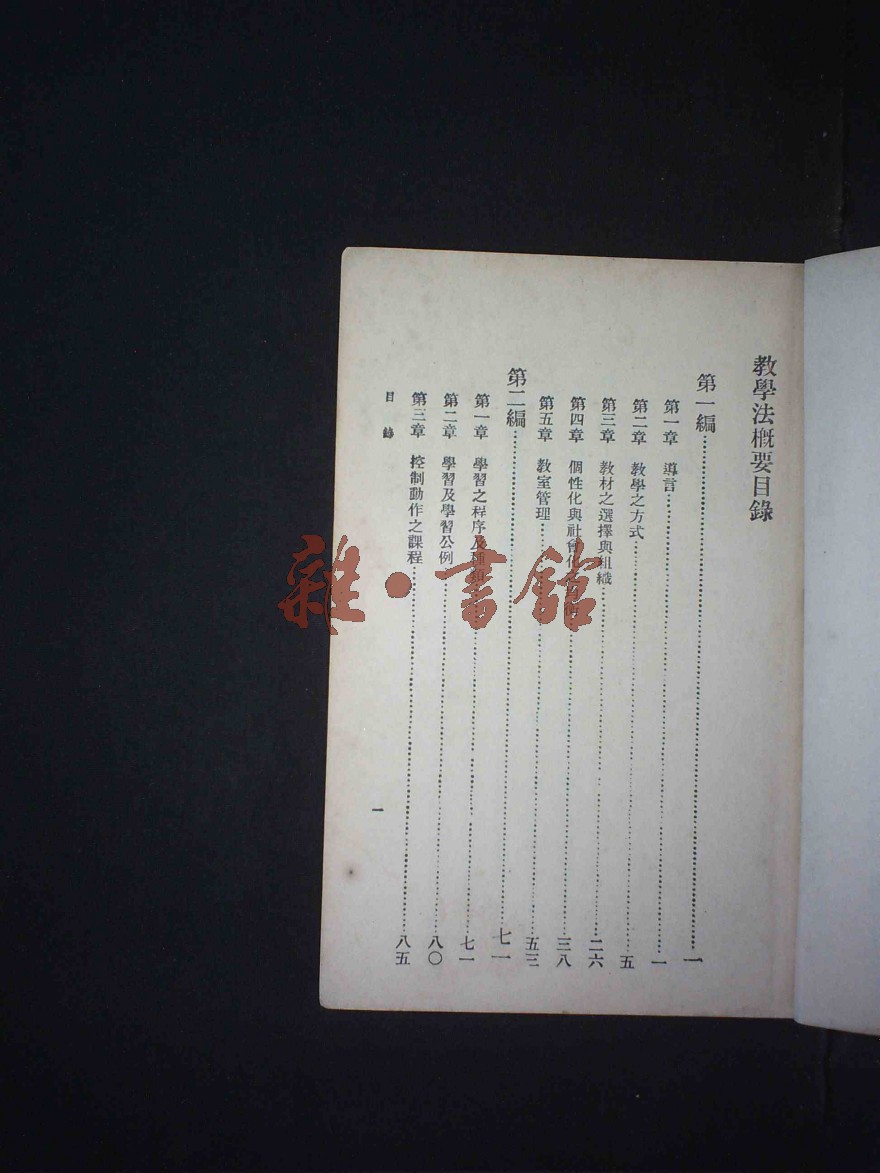 教學法概要目錄
第一編……一
第一章 導言……一
第二章 教學之方式……五
第三章 教材之選擇與組織……二六
第四章 個性化與社會化……三八
第五章 教室管理……五三
第二編……七一
第一章 學習之程序及種類……七一
第二章 學習及學習公例……八〇
第三章 控制動作之課程……八五
目錄
一
雜·書館